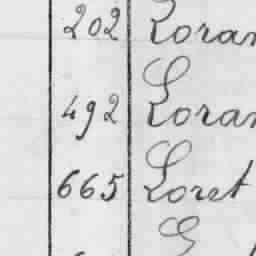 202 Loran
492 Loran
665 Loret